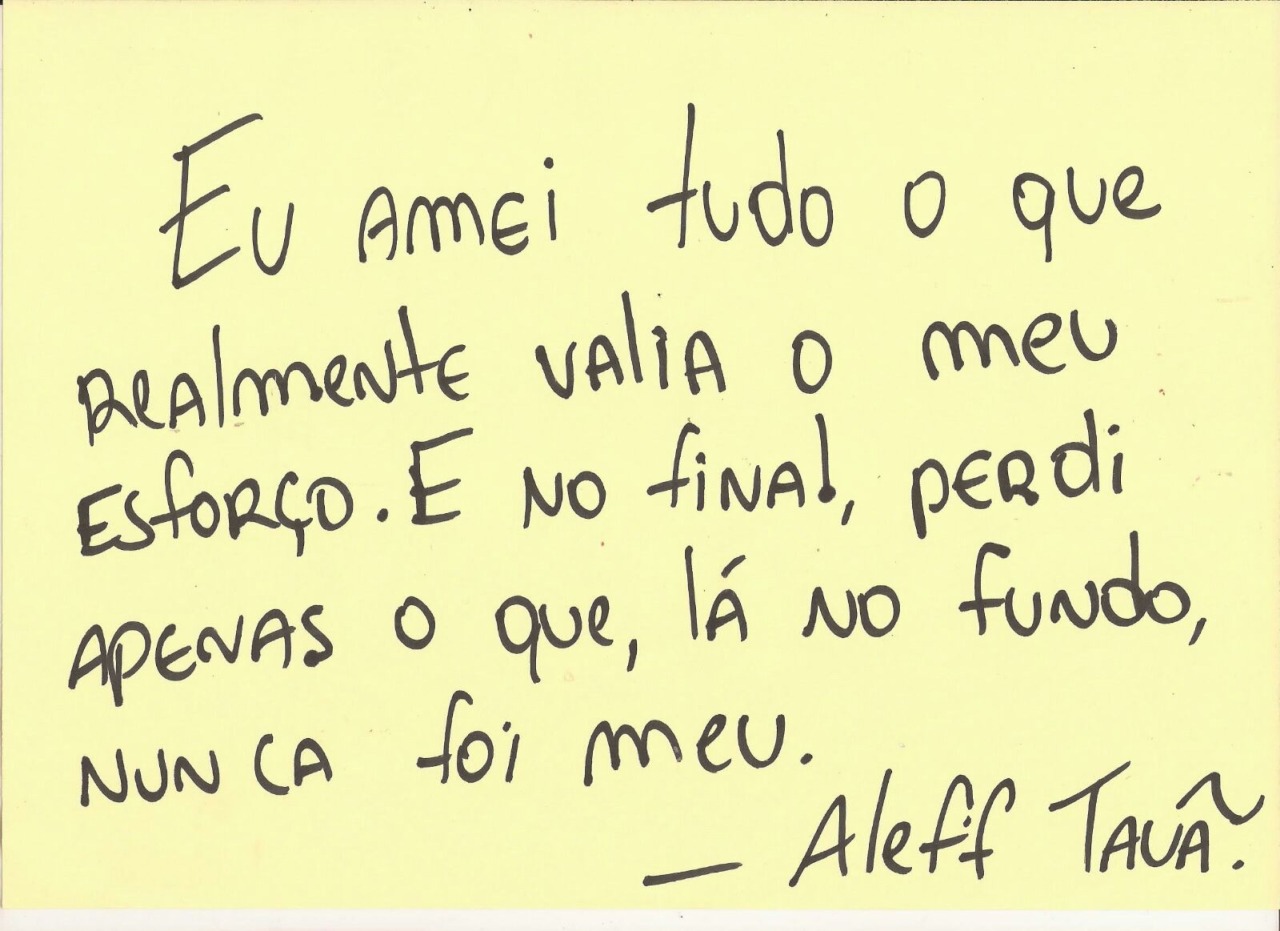 Eu amei tudo o que
realmente valia o meu
esforço. E no final, perdi
apenas o que, lá no fundo,
nunca foi meu.
— Aleff Tauã.